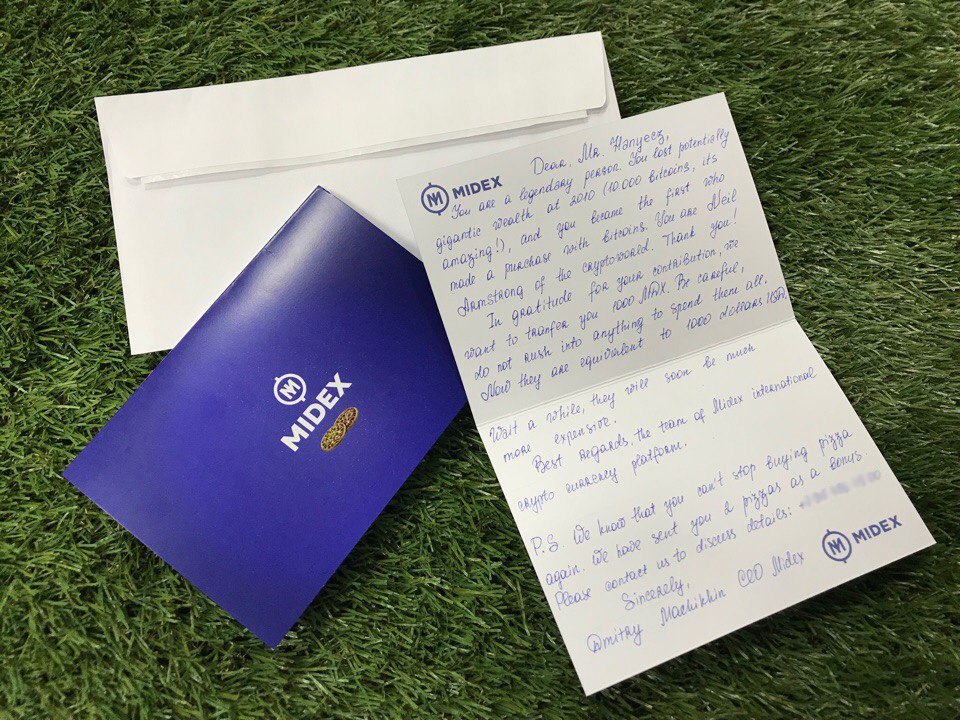 MIDEX
Dear, Mr. Hanyecz,
You are a legendary person. You lost potentially
gigantic wealth at 2010 (10.000 bitcoins, its
amazing!), and you became the first who
made a purchase with bitcoins. You are Neil
Armstrong of the cryptoworld. Thank you!
In gratitude for your contribution, we
want to tranfer you 1000 MDX. Be careful,
do not rush into anything to spend them all.
Now they are equivalent to 1000 dollars USA.
Wait a while, they will soon be much
more expensive.
Best regards, the team of Midex international
crypto currency platform.
P.S. We know that you can't stop buying pizza
again. We have sent you 2 pizzas as a bonus
Please contact us to discuss details:
Sincerely,
Dmitry Machikhin CEO Midex
MIDEX
MIDEX